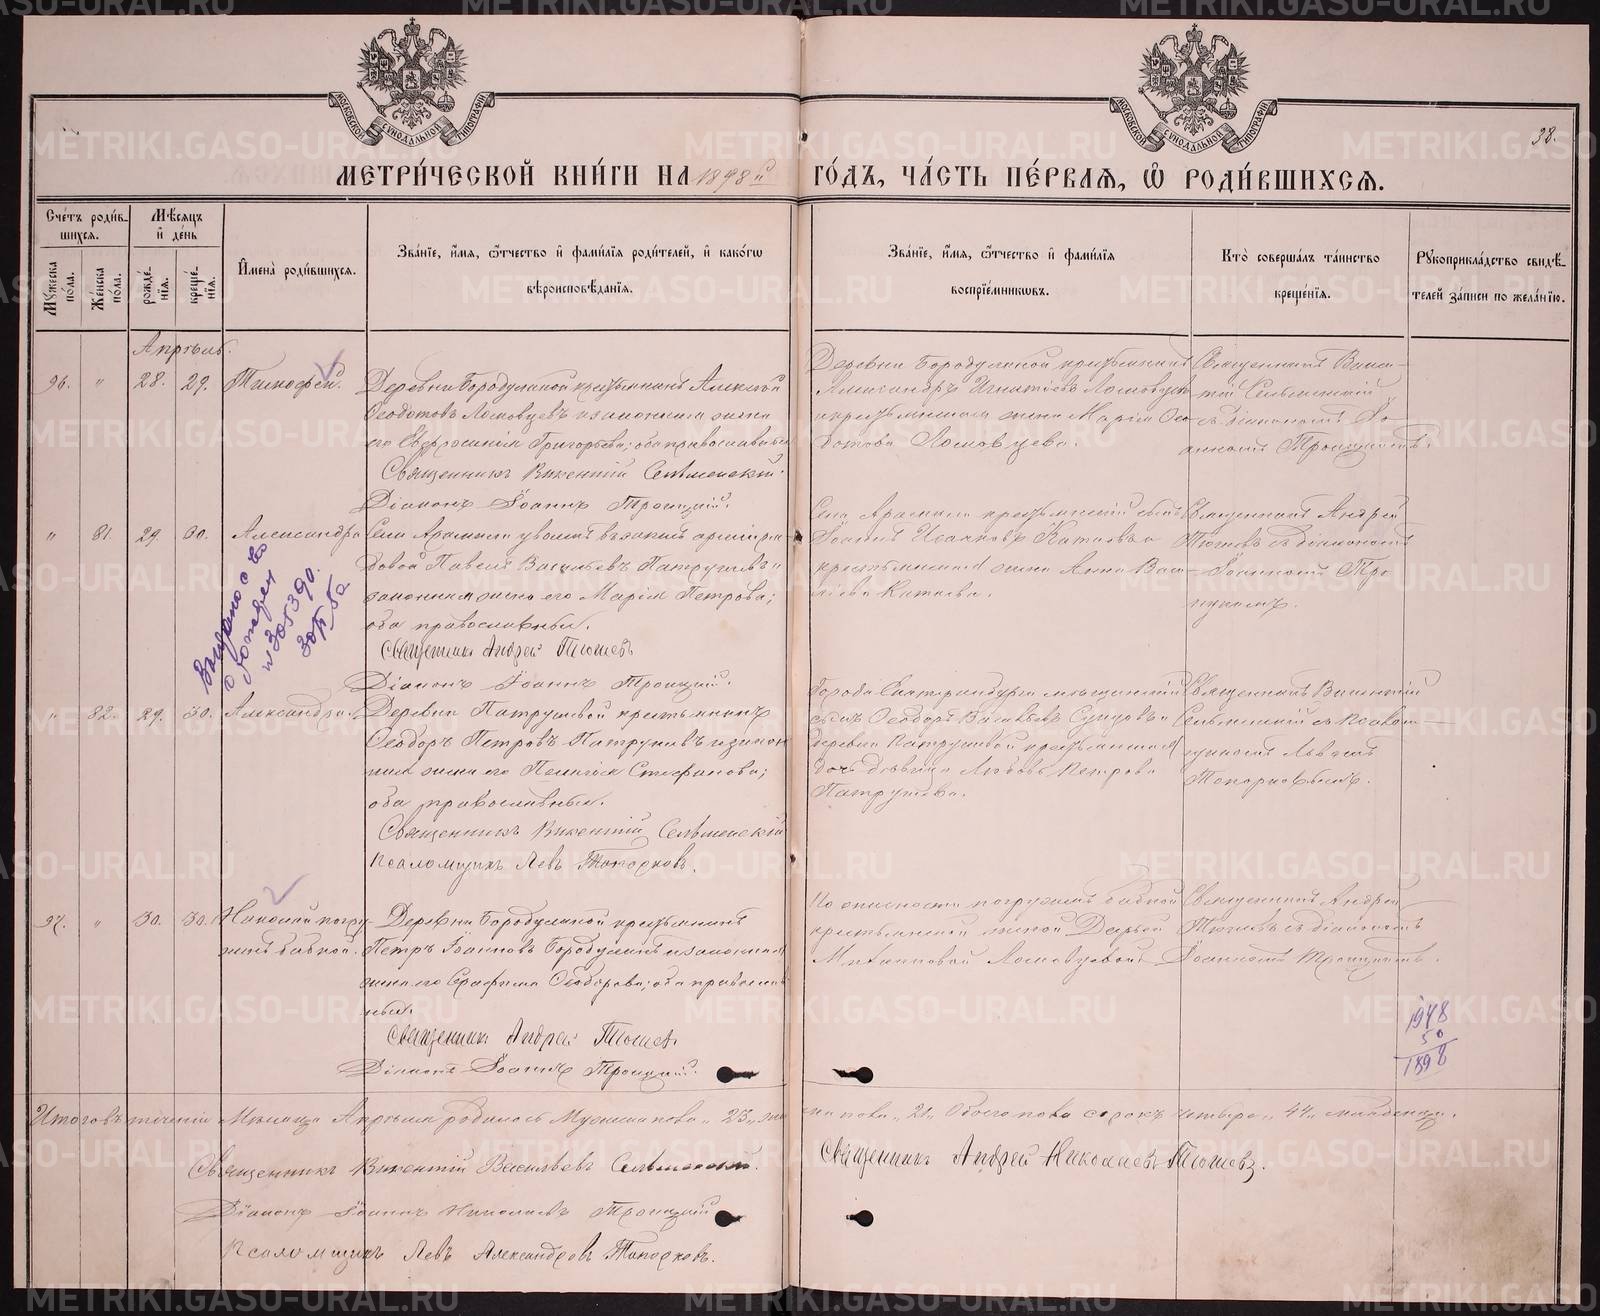 38.
МЕТРИ́ЧЕСКОЙ КНИ́ГИ НА 1898й ГО́ДЪ, ЧА́СТЬ ПЕ́РВАѦ, Ѡ РОДИ́ВШИХСѦ.
МОСКОВСКОЙ СѴНОДАЛЬНОЙ ТИПОГРАФІИ
МОСКОВСКОЙ СѴНОДАЛЬНОЙ ТИПОГРАФІИ
Сче́тъ роди́в-
шихся.
Мꙋ́жеска по́ла.
Же́нска по́ла.
Мѣ́сяцъ
и҆ де́нь
рожде́-
нїя.
креще́-
нїя.
И҆мена̀ роди́вшихся.
Зва́нїе, и҆́мя, ѻ҆́тчество и҆ фами́лїя роди́телей, и҆ како́гѡ
вѣроисповѣ́данїя.
Зва́нїе, и҆́мя, ѻ҆́тчество и҆ фами́лїя
воспрїе́мникѡвъ.
Кто̀ соверша́лъ та́инство
креще́нїя.
Рꙋкоприкла́дство свидѣ́-
телей за́писи по жела́нїю.
Апрѣль.
96. " 28. 29. Тимофей.
Деревни Бородулиной крестьянинъ Алексѣй
Ѳеодотовъ Ломовцевъ и законная жена
его Евфросинія Григорьева; оба православные
Священникъ Викентій Сельменскій.
Діаконъ Іоаннъ Троицкій.
Деревни Бородулиной крестьянинъ
Александръ Игнатіевъ Ломовцевъ
и крестьянская жена Марія Ѳео-
дотова Ломовцева.
Священникъ Викен-
тій Сельменскій
съ діакономъ Іо-
анномъ Троицкимъ.
" 81. 29. 30. Александра
Села Арамили уволенъ въ запасъ арміи рядовой Павелъ Васильевъ Патрушевъ и
законная жена его Марія Петрова;
оба православные.
Священник Андрей Тюшев
Діаконъ Іоаннъ Троицкій.
Села Арамили крестьянскій сынъ
Іоаннъ Исааковъ Катаевъ и
крестьянская жена Анна Васи-
ліева Катаева.
Священникъ Андрей
Тюшевъ съ діакономъ
Іоанномъ Тро-
ицкимъ.
Выдано с во
о рожден
№ 305390.
" 82. 29. 30. Александра.
Деревни Патрушевой крестьянинъ
Ѳеодоръ Петровъ Патрушевъ и закон-
ная жена его Пелагія Стефанова;
оба православные.
Священникъ Викентій Сельменскій
Псаломщикъ Левъ Топорковъ.
Города Екатеринбурга мѣщанскій
сынъ Ѳеодоръ Васильевъ Сунцовъ и
деревни Патрушевой крестьянская
дочь дѣвица Любовь Петрова
Патрушева.
Священникъ Викентій
Сельменскій съ псалом-
щикомъ Львомъ
Топорковымъ.
97. " 30. 30. Николай погру-
женъ бабкой.
Деревни Бородулиной крестьянинъ
Петръ Іоанновъ Бородулинъ и законная
жена его Серафима Ѳеодорова; оба православ-
ные.
Священник Андрей Тюшев
Діаконъ Іоаннъ Троицкій.
По опасности погруженъ бабкой
крестьянской женой Дарьей
Ломовцевой.
Священникъ Андрей
Тюшевъ съ діакономъ
Іоанномъ Троицкимъ.
1948
50
1898
Итого въ теченіи Мѣсяца Апрѣля родилось Мужеска пола „23„ женска пола „21„ Обоего пола сорокъ четыре „44„ младенца.
Священникъ Викентій Васильевъ Сельменскій.
Священникъ Андрей Николаевъ Тюшевъ.
Діаконъ Іоаннъ Николаевъ Троицкій
Псаломщикъ Левъ Александровъ Топорковъ.
METRIKI.GASO-URAL.RU